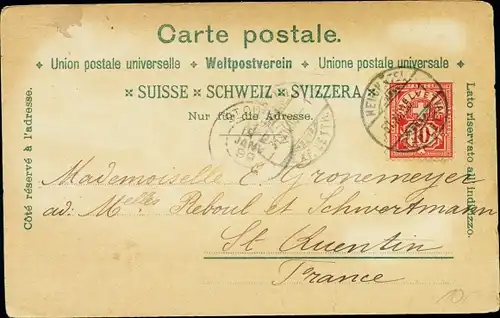 Carte postale.
✤ Union postale universelle ✤ Weltpostverein ✤ Unione postale universale ✤
SUISSE SCHWEIZ SVIZZERA
Nur für die Adresse.
Côté réservé à l'adresse.
Lato riservato all' indirizzo.
HELVETIA
10
Mademoiselle E. Gronemeyer
ad: Melles Reboul et Schwertmann
St Quentin
France
10